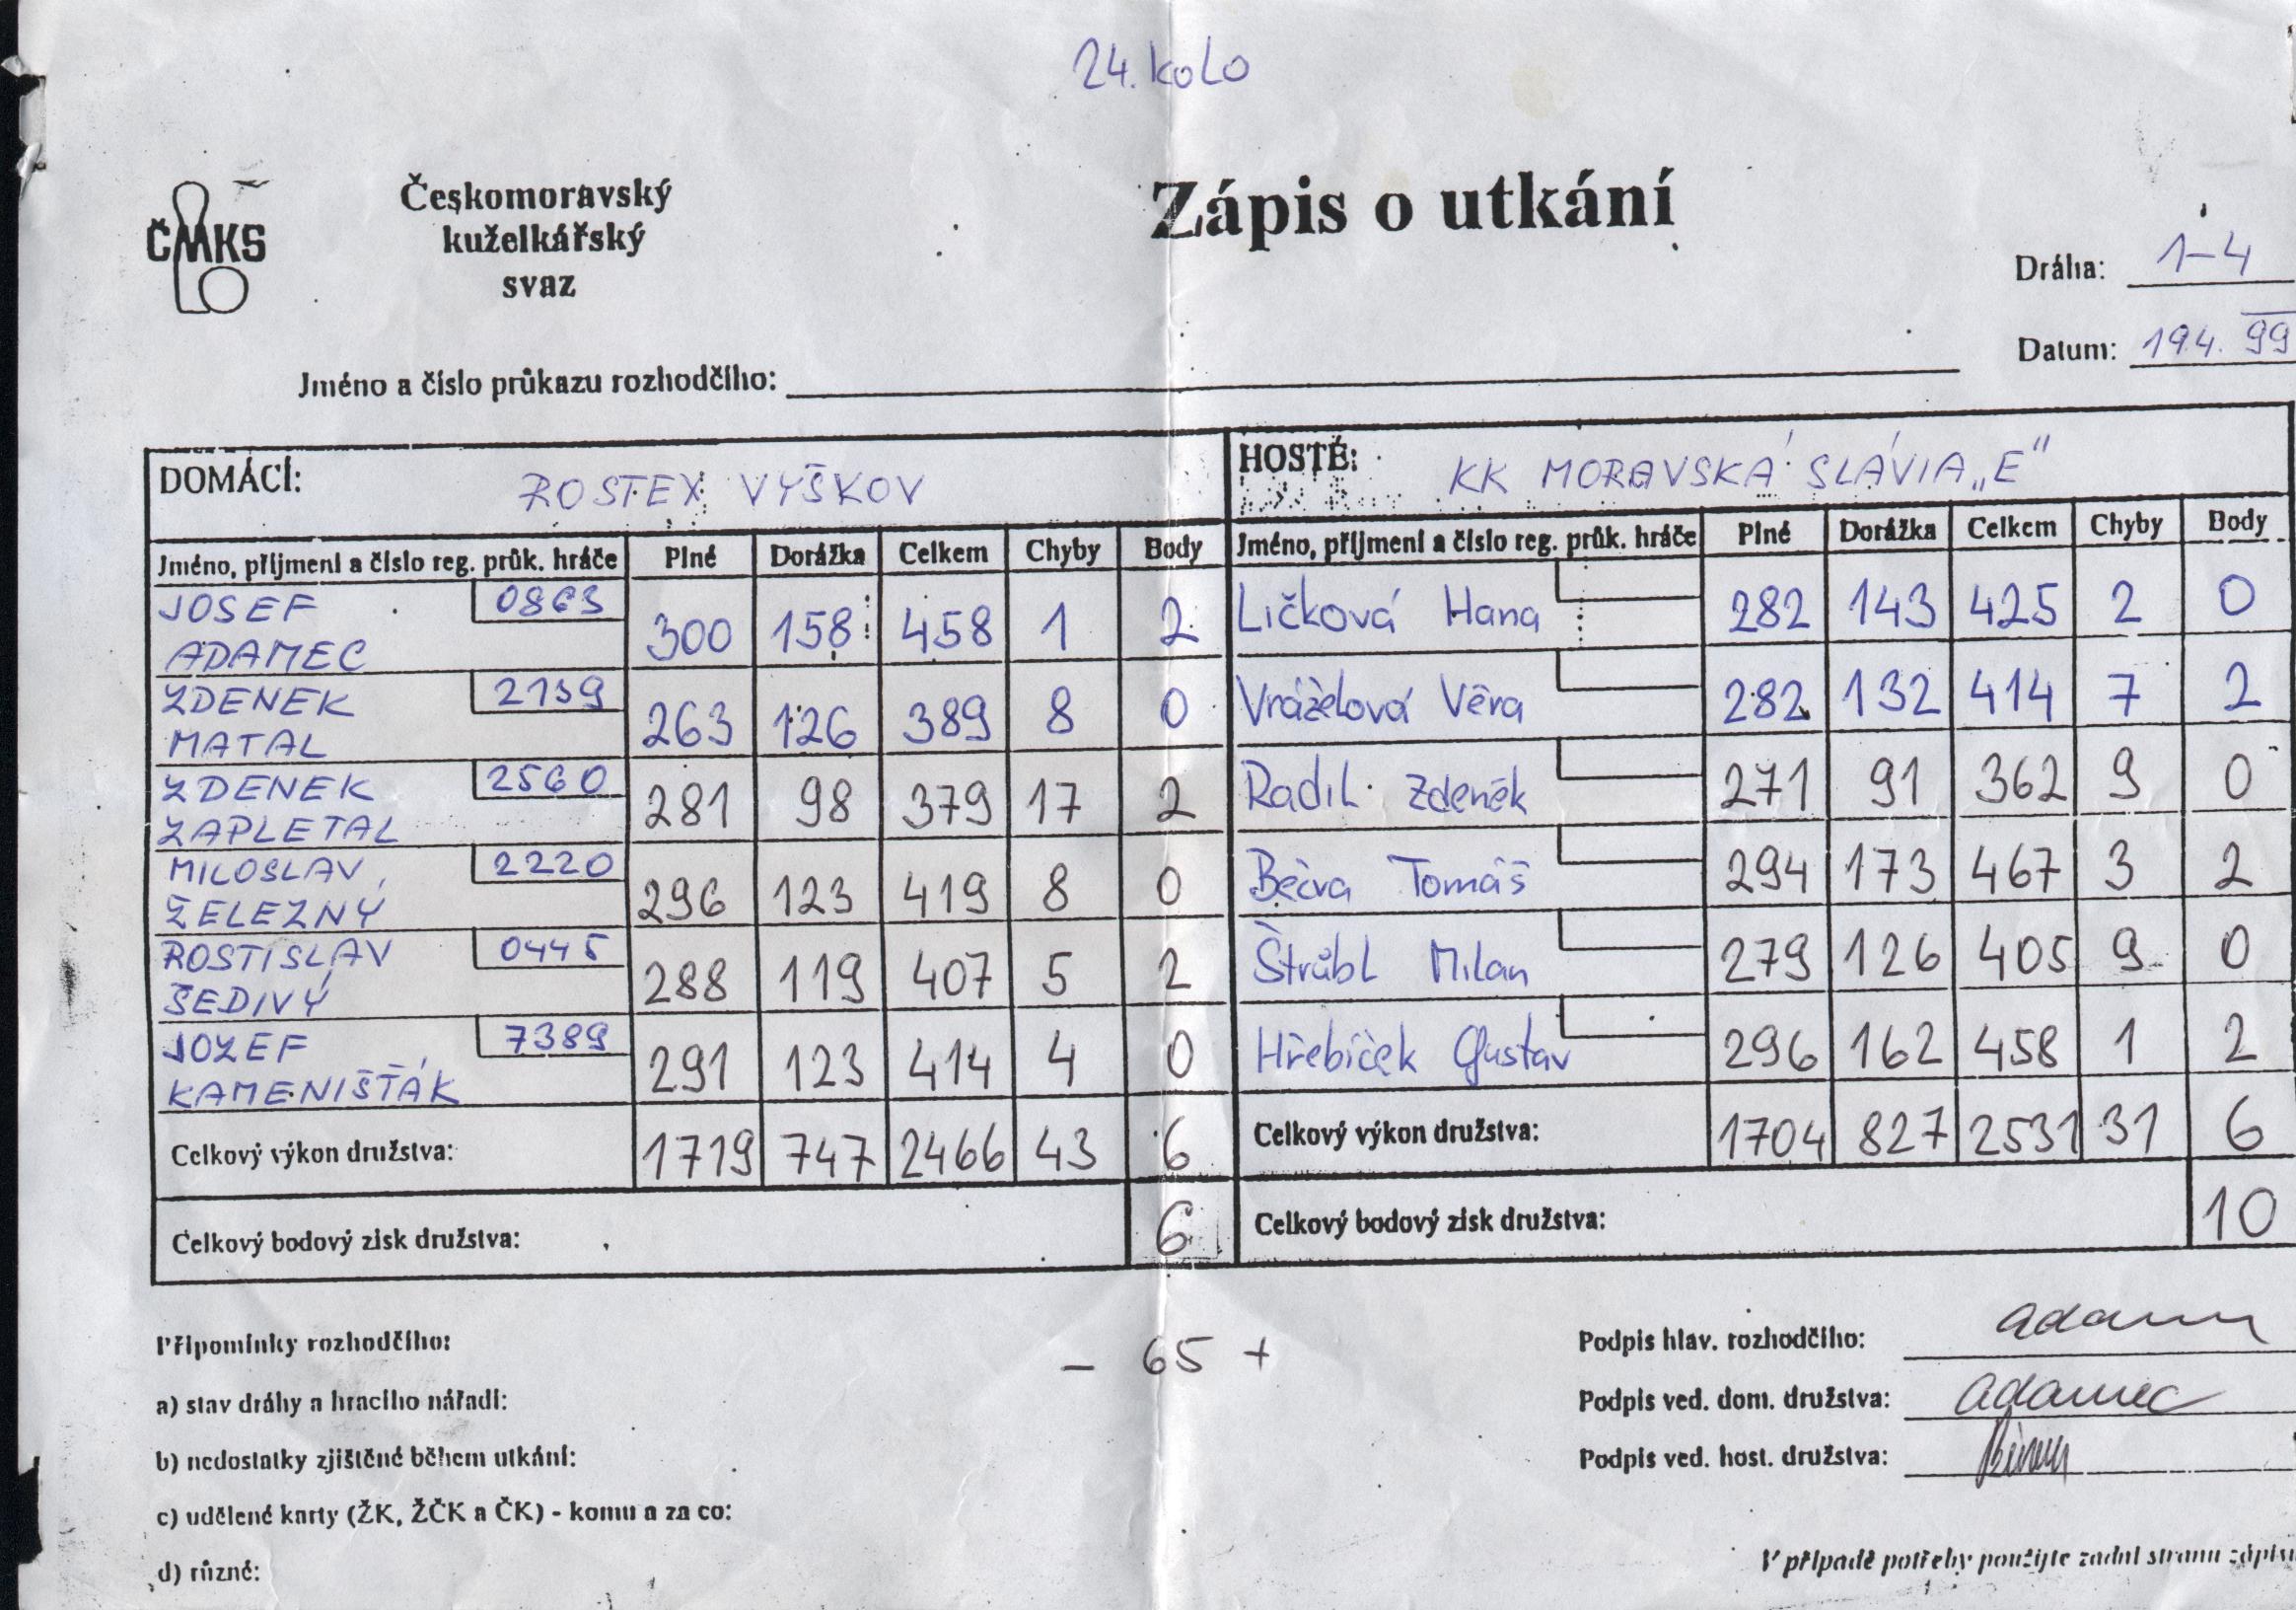 24. kolo
ČMKS
Českomoravský
kuželkářský
svaz
Zápis o utkání
Dráha: 1-4
Datum: 19.4. 99
Jméno a číslo průkazu rozhodčího:
DOMÁCÍ: ROSTEX VYŠKOV HOSTÉ: KK MORAVSKÁ SLÁVIA „E"
Jméno, příjmení a číslo reg. průk. hráče Plné Dorážka Celkem Chyby Body Jméno, příjmení a číslo reg. průk. hráče Plné Dorážka Celkem Chyby Body
JOSEF ADAMEC 0863 300 158 458 1 2 Ličková Hana 282 143 425 2 0
ZDENEK MATAL 2139 263 126 389 8 0 Vráželová Věra 282 132 414 7 2
ZDENEK ZAPLETAL 2560 281 98 379 17 2 Radil Zdeněk 271 91 362 9 0
MILOSLAV ŽELEZNÝ 2220 296 123 419 8 0 Bečva Tomáš 294 173 467 3 2
ROSTISLAV ŠEDIVÝ 0445 288 119 407 5 2 Štrůbl Milan 279 126 405 9 0
JOZEF KAMENIŠŤÁK 7389 291 123 414 4 0 Hřebíček Gustav 296 162 458 1 2
Celkový výkon družstva: 1719 747 2466 43 6 Celkový výkon družstva: 1704 827 2531 31 6
Celkový bodový zisk družstva: 6 Celkový bodový zisk družstva: 10
Připomínky rozhodčího:
- 65 +
Podpis hlav. rozhodčího:
a) stav dráhy a hracího nářadí:
Podpis ved. dom. družstva: Adamec
b) nedostatky zjištěné během utkání:
Podpis ved. host. družstva:
c) udělené karty (ŽK, ŽČK a ČK) - komu a za co:
d) různé:
V případě potřeby použijte zadní stranu zápisu